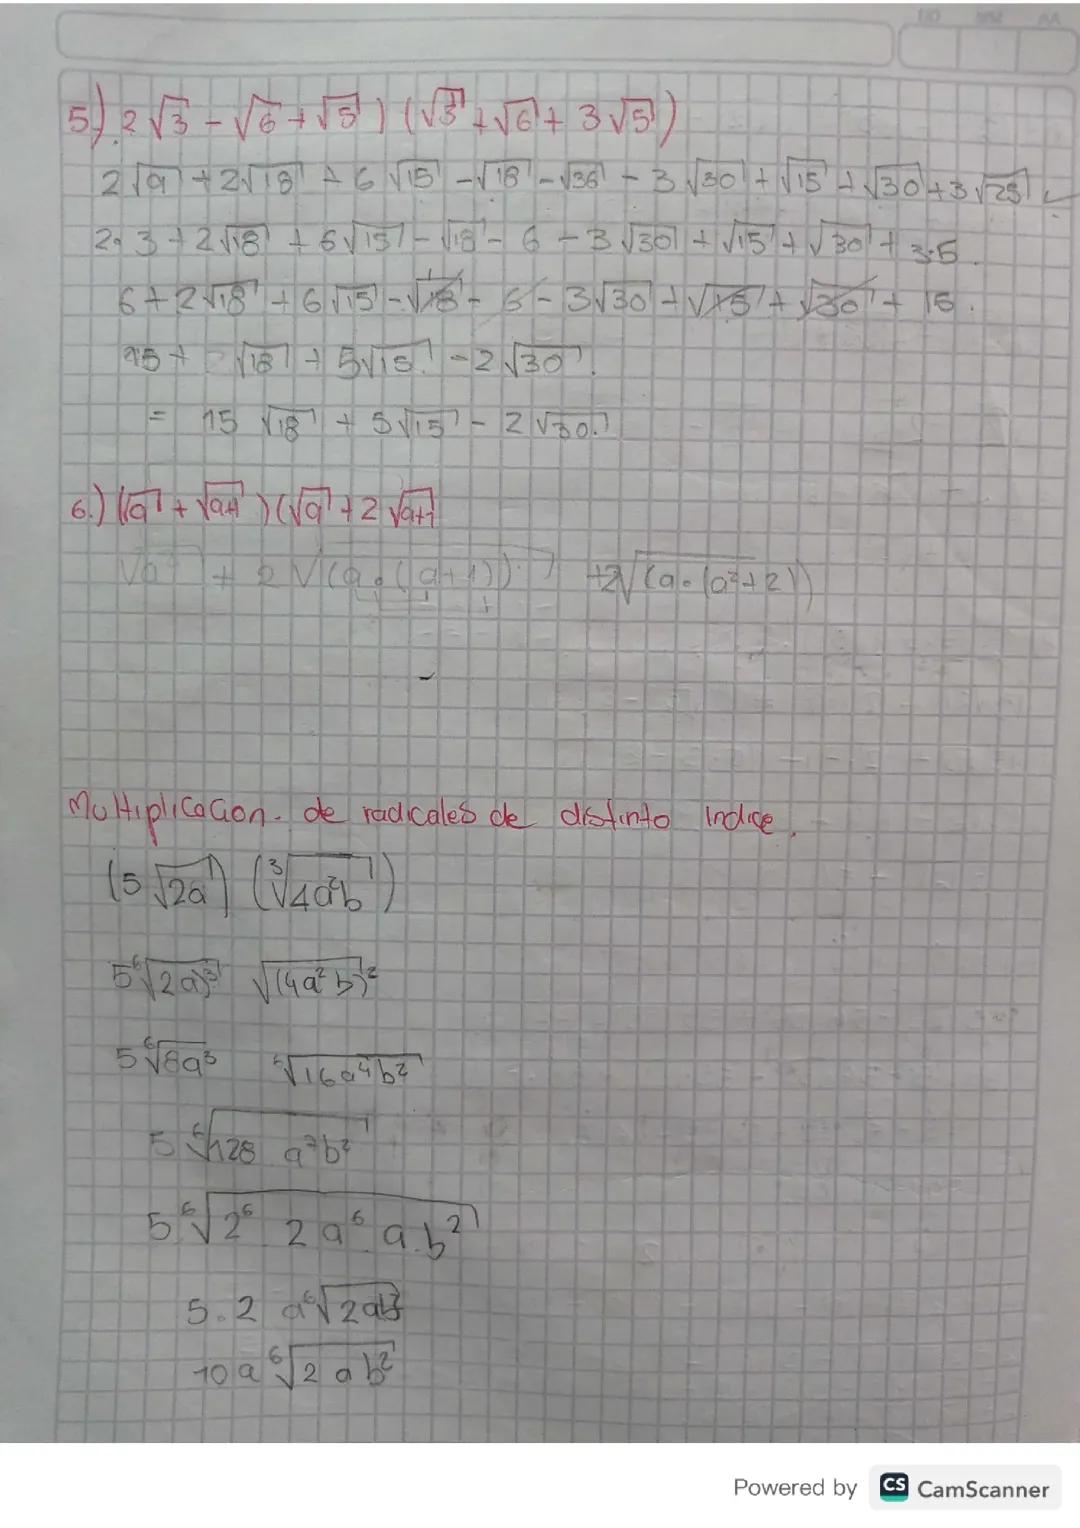 5.) 2√3 - √6 + √5) (√3 + √6 + 3√5)
2√9 + 2√18 + 6√15 - √18 - √36 - 3√30 + √15 + √30 + 3√25
2·3 + 2√18 + 6√15 - √18 - 6 - 3√30 + √15 + √30 + 3·5.
6 + 2√18 + 6√15 - √18 - 6 - 3√30 + √15 + √30 + 15.
15 + √18 + 5√15 - 2√30.
= 15 √18 + 5√15 - 2√30.
6.) (√a + √a+1) (√a + 2√a+1
+ 2√(a·(a+1)) +2√(a·(a²+2))
Multiplicacion. de radicales de distinto indice.
(5√2a) (∛4a²b)
5⁶√2a)³ √(4a²b)²
5⁶√8a³ ⁶√16a⁴b²
5⁶√128 a⁷b²
5⁶√2⁶ 2a⁶ a.b²
5.2 a⁶√2ab²
10a⁶√2ab²
Powered by CS CamScanner